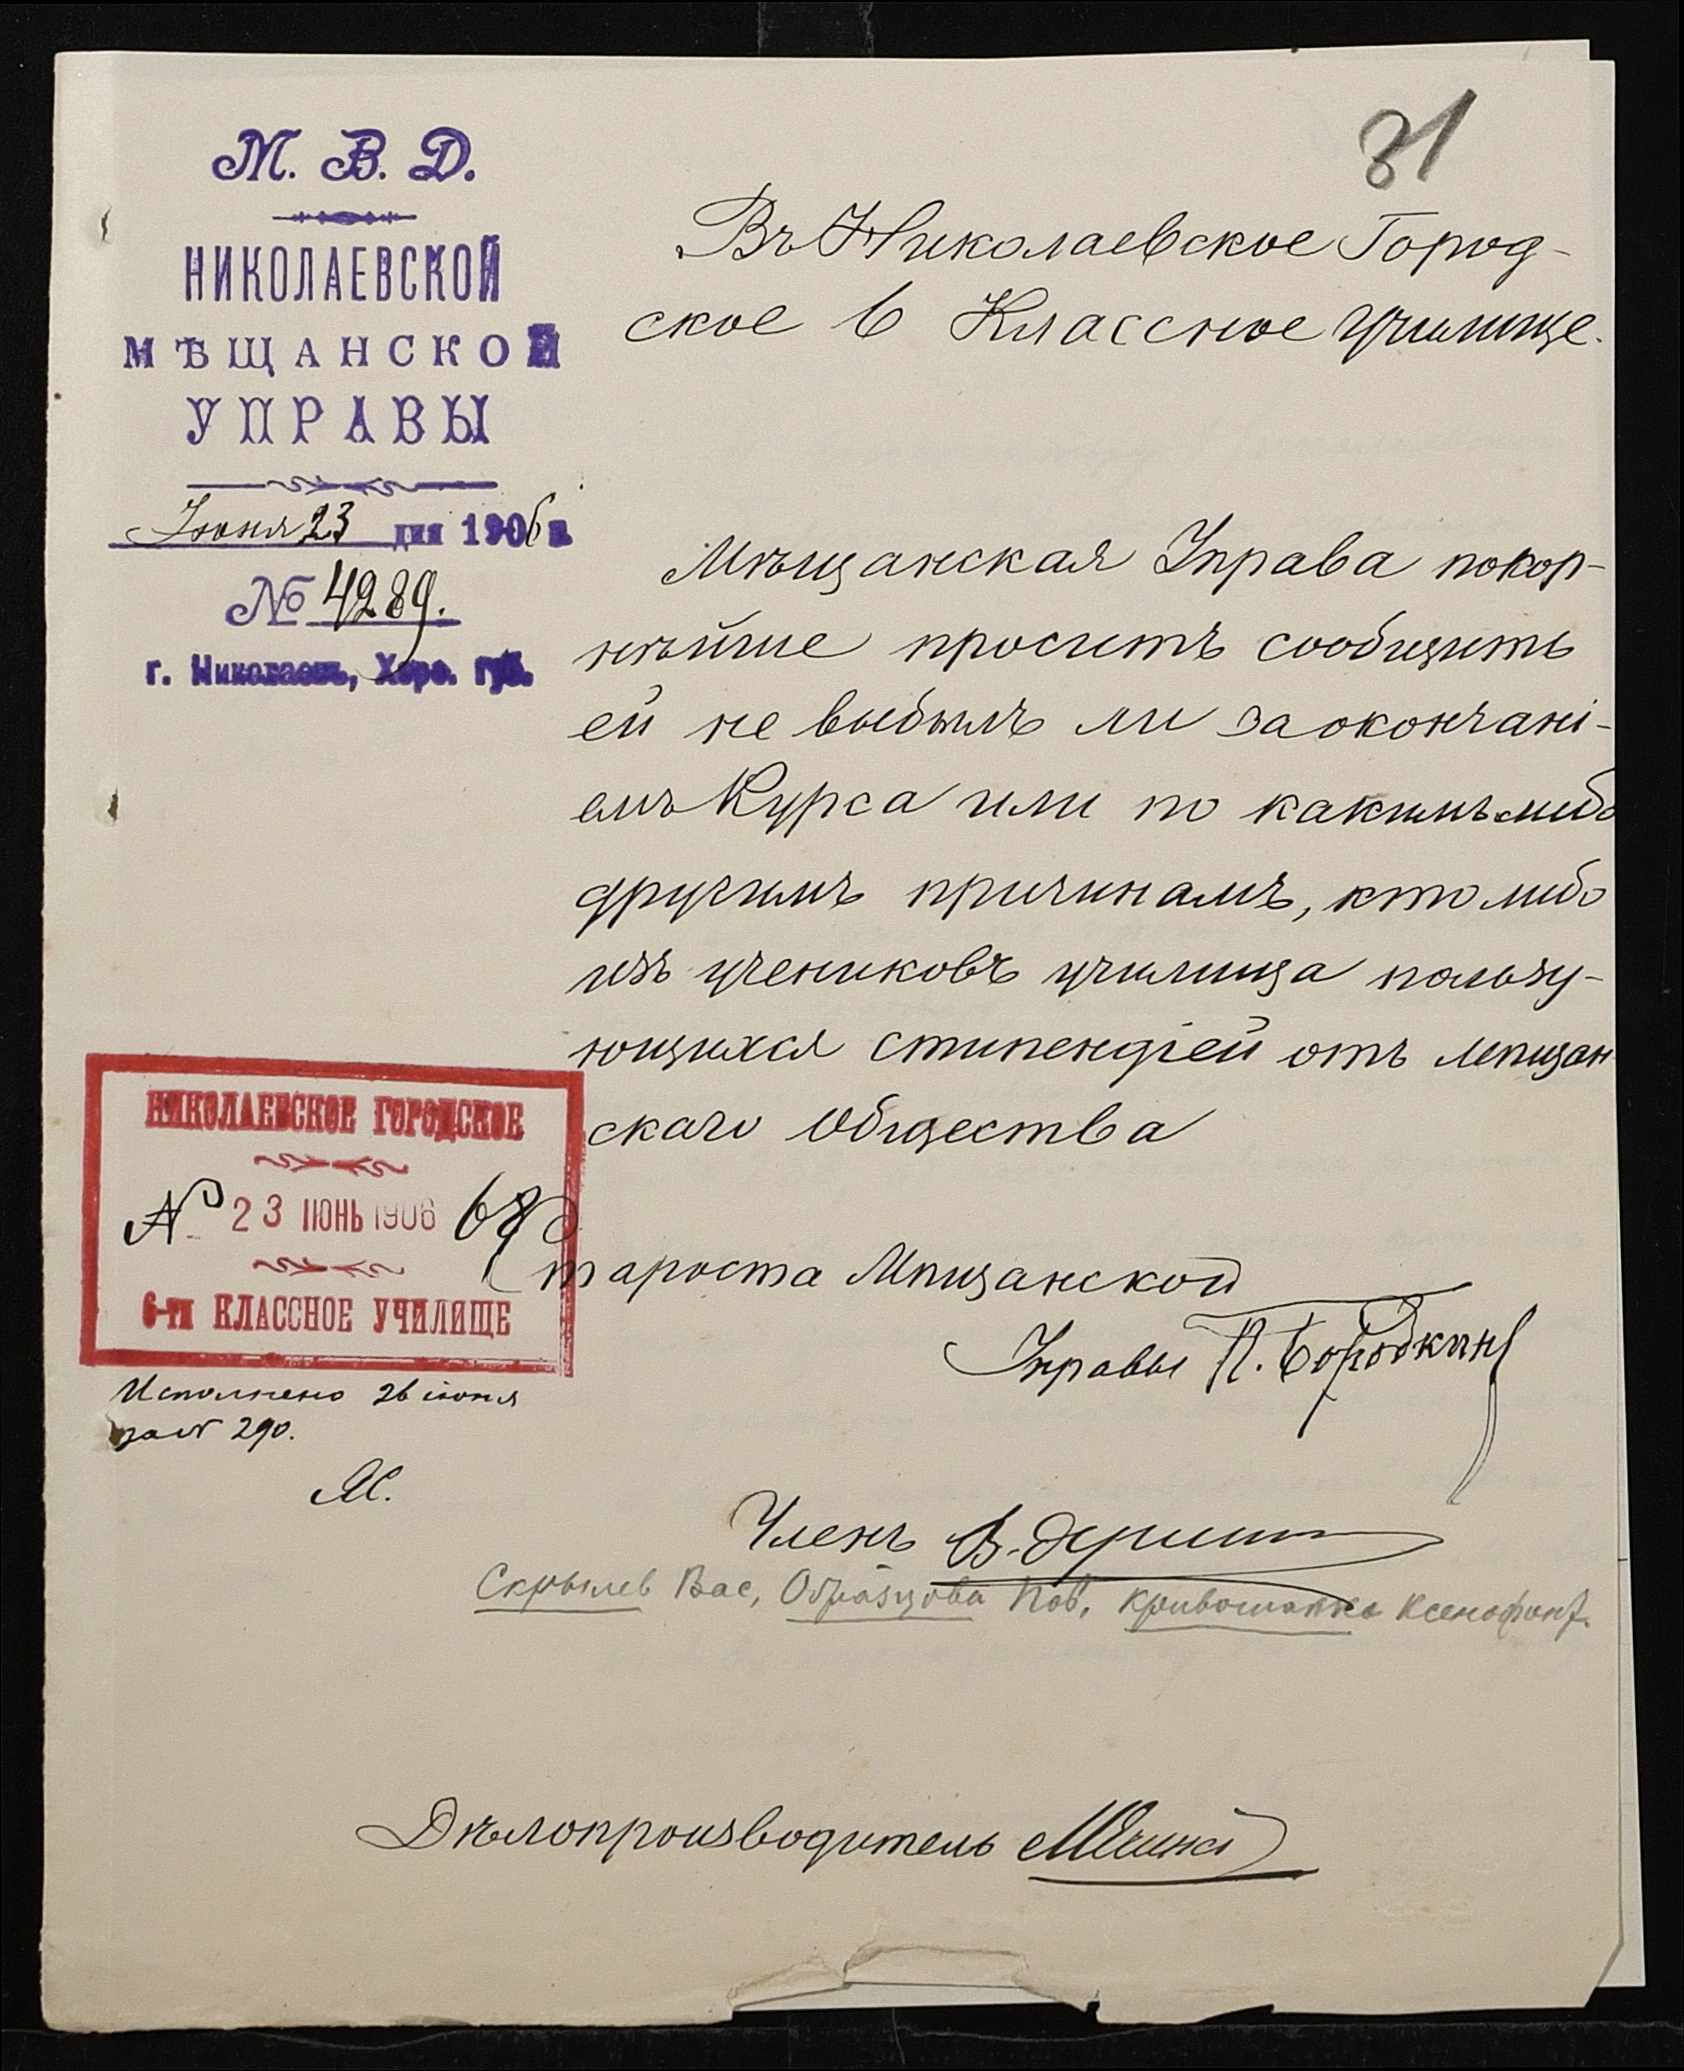 31
М. В. Д.
НИКОЛАЕВСКОЙ
МѢЩАНСКОЙ
УПРАВЫ
Іюня 23 дня 1906 г.
№ 4289.
г. Николаевъ, Херс. губ.
Въ Николаевское Город-
ское 6 Классное училище.
Мѣщанская Управа покор-
нѣйше проситъ сообщить
ей не выбылъ ли за окончані-
емъ Курса или по какимъ либо
другимъ причинамъ, кто либо
изъ учениковъ училища пользу-
ющихся стипендіей отъ мѣщан
скаго Общества
НИКОЛАЕВСКОЕ ГОРОДСКОЕ
№ 23 ІЮНЬ 1906
6-ТИ КЛАССНОЕ УЧИЛИЩЕ
Староста Мѣщанской
Управы П. Бородкинъ
Исполнено 26 іюня
за № 290.
Членъ В.
Скрылев Вас, Образцова Пав, Ксенофонт.
Дѣлопроизводитель